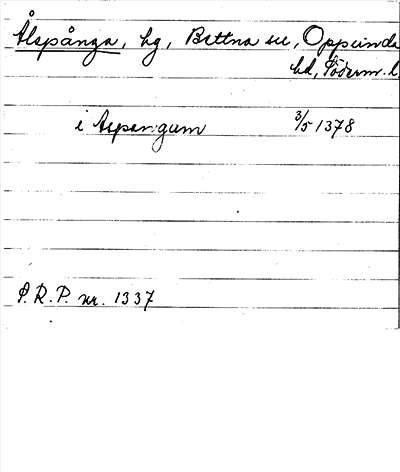 Ålspånga, hg, Bettna sn, Oppunda
hd, Söderm. l
i Aspangum 3/5 1378
P.R.P. nr. 1337